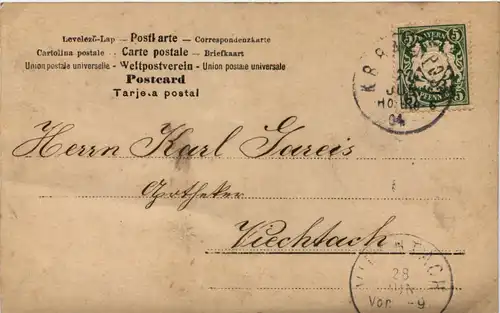 Levelező-Lap — Postkarte — Correspondenzkarte
Cartolina postale — Carte postale — Briefkaart
Union postale universelle - Weltpostverein - Union postale universale
Postcard
Tarjeta postal
5 5
BAYERN
5 PFENNIG 5
04
Herrn Karl Gareis
Apotheker
Viechtach
VIECHTACH
28
JUN
Vor. 8-9